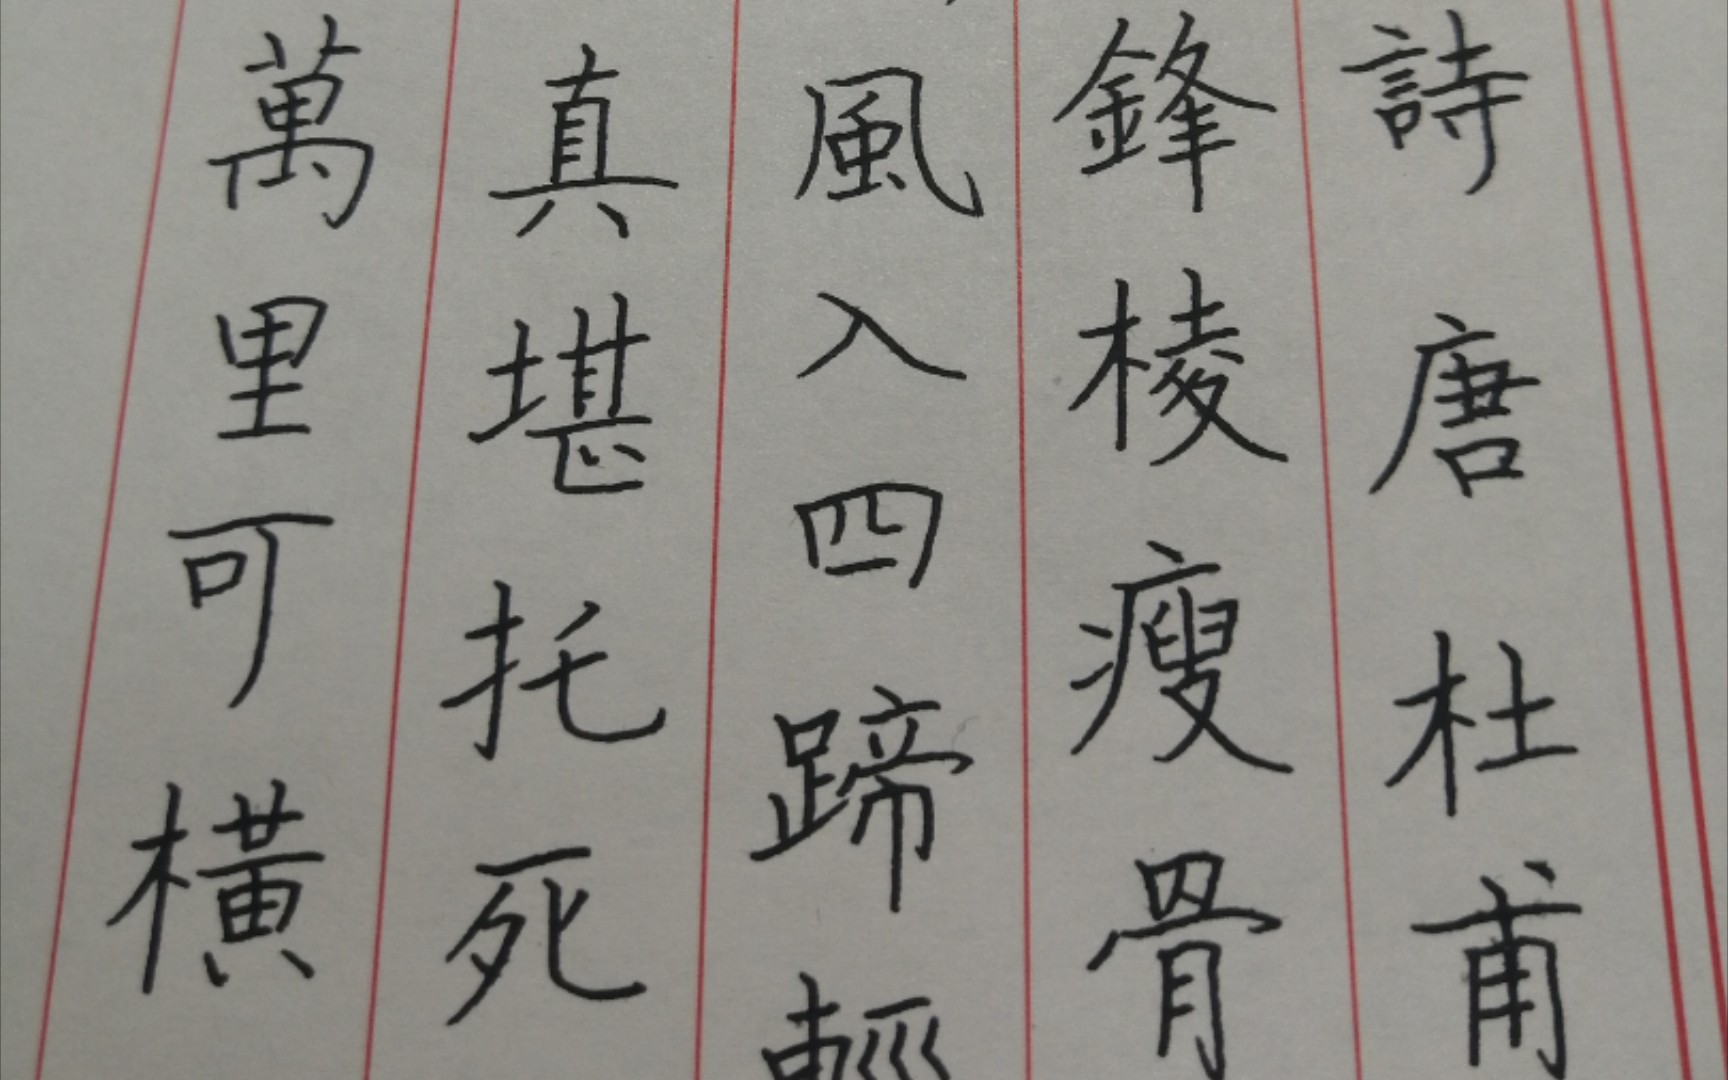 詩唐杜甫
鋒棱瘦骨
風入四蹄輕
真堪托死
萬里可橫